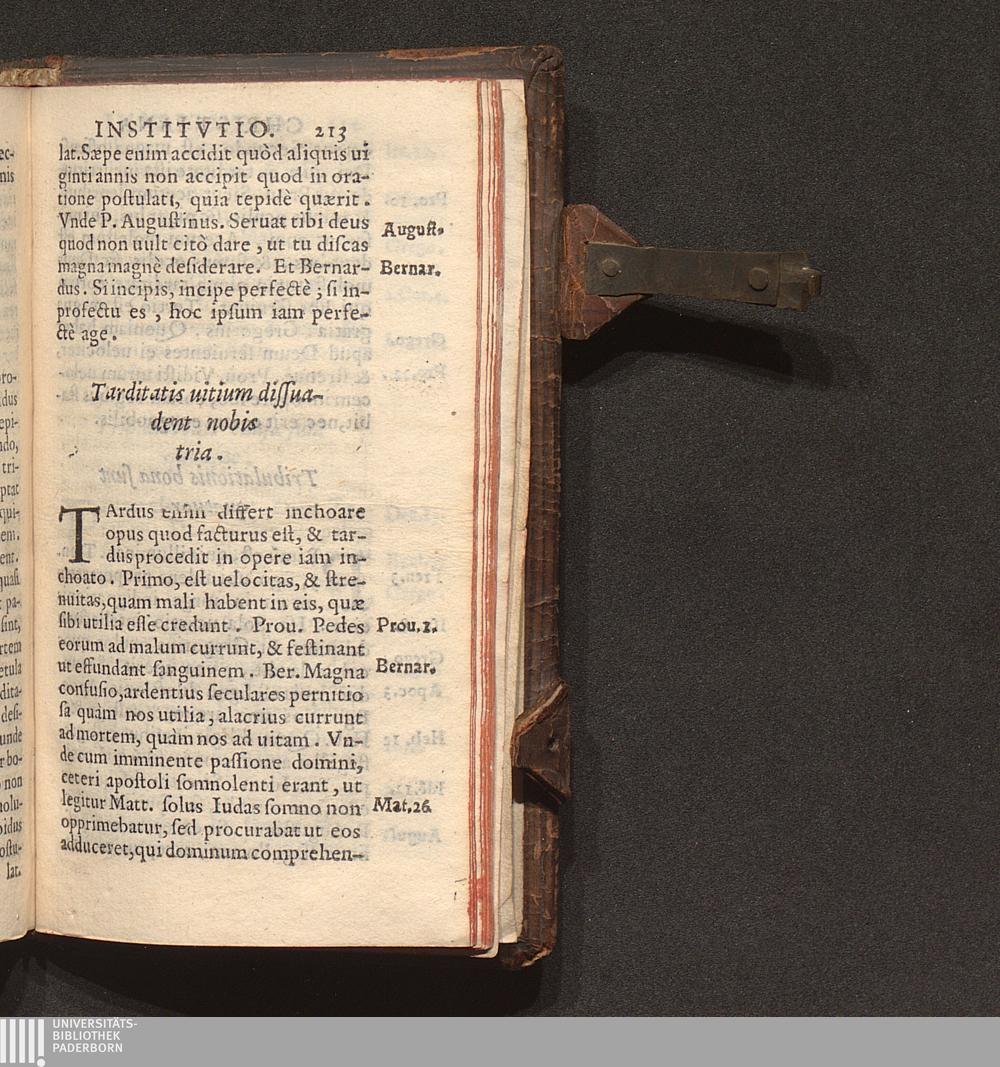 INSTITVTIO. 213
lat. Sæpe enim accidit quòd aliquis ui
ginti annis non accipit quod in ora-
tione poſtulati, quia tepidè quærit.
Vnde P. Auguſtinus. Seruat tibi deus
Auguſt.
quod non uult citò dare, ut tu diſcas
magna magnè deſiderare. Et Bernar-
Bernar.
dus. Si incipis, incipe perfectè; ſi in-
profectu es, hoc ipſum iam perfe-
ctè age.
Tarditatis uitium diſſua-
dent nobis
tria.
TArdus enim differt inchoare
opus quod facturus eſt, & tar-
dus procedit in opere iam in-
choato. Primo, eſt uelocitas, & ſtre-
nuitas, quam mali habent in eis, quæ
ſibi utilia eſſe credunt. Prou. Pedes
Prou. 1.
eorum ad malum currunt, & feſtinant
ut effundant ſanguinem. Ber. Magna
Bernar.
confuſio, ardentius ſeculares pernitio
ſa quàm nos utilia, alacrius currunt
ad mortem, quàm nos ad uitam. Vn-
de cum imminente paſſione domini,
ceteri apoſtoli ſomnolenti erant, ut
legitur Matt. ſolus Iudas ſomno non
Mat. 26
opprimebatur, ſed procurabat ut eos
adduceret, qui dominum comprehen-
UNIVERSITÄTS-
BIBLIOTHEK
PADERBORN